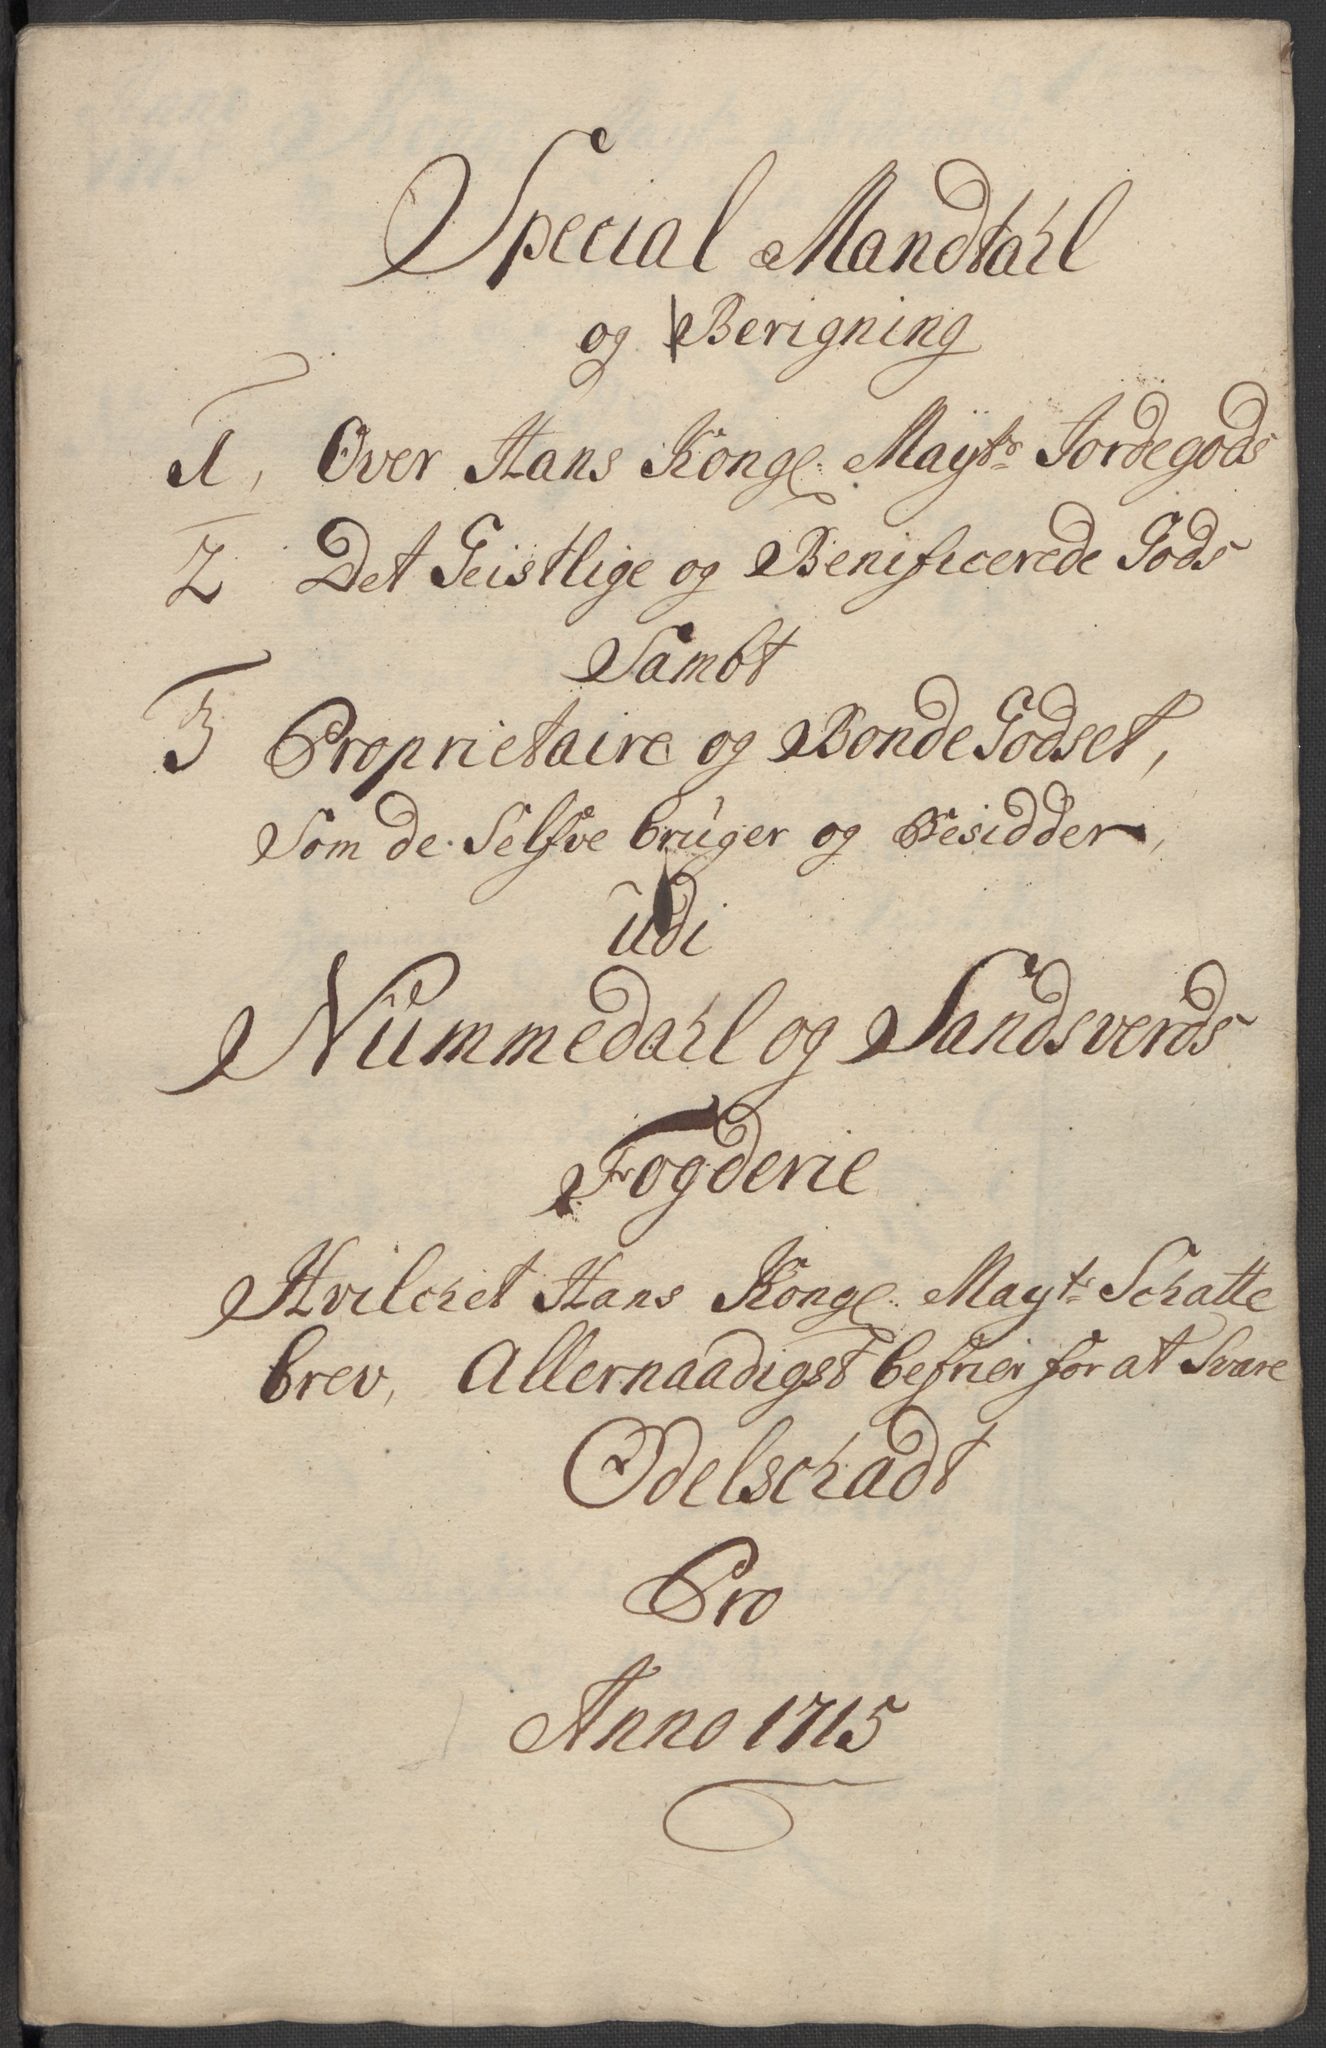 Special Mandtahl
og Berigning
1, Over Hans Kongl. Mayts Jordegods
2 Det Geistlige og Benificerede Gods
Sambt
3 Proprietaire og BondeGodset,
Som de Selfve bruger og Besidder,
udi
Nummedahl og Sandsverds
Fogderie
Hvilchet Hans Kongl. Mayts Schatte
brev, Allernaadigst befrier for at Svare
Odelschadt
Pro
Anno 1715